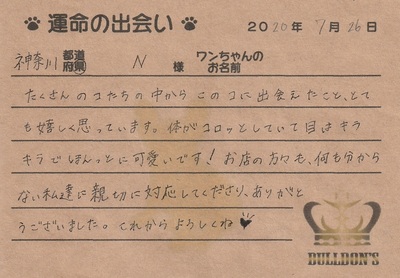 運命の出会い 2020年 7月 26日
神奈川 都道府県 N 様 ワンちゃんのお名前
たくさんのコたちの中から このコに出会えたこと、とて
も嬉しく思っています。体がコロッとしていて目はキラ
キラでほんっとに可愛いです! お店の方々も、何も分から
ない私達に親切に対応してくださり、ありがと
うございました。これからよろしくね
BULLDON'S